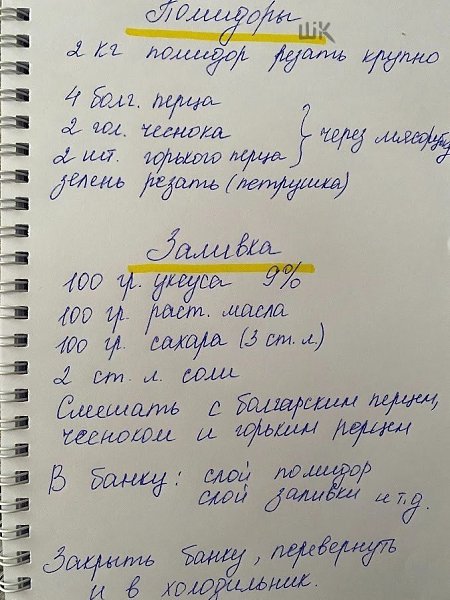 Помидоры
ШК
2 кг помидор резать крупно
4 болг. перца
2 гол. чеснока
2 шт. горького перца
} через мясорубку
зелень резать (петрушка)
Заливка
100 гр. уксуса 9%
100 гр. раст. масла
100 гр. сахара (3 ст. л)
2 ст. л. соли
Смешать с болгарским перцем,
чесноком и горьким перцем
В банку: слой помидор
слой заливки и т.д.
Закрыть банку, перевернуть
и в холодильник.